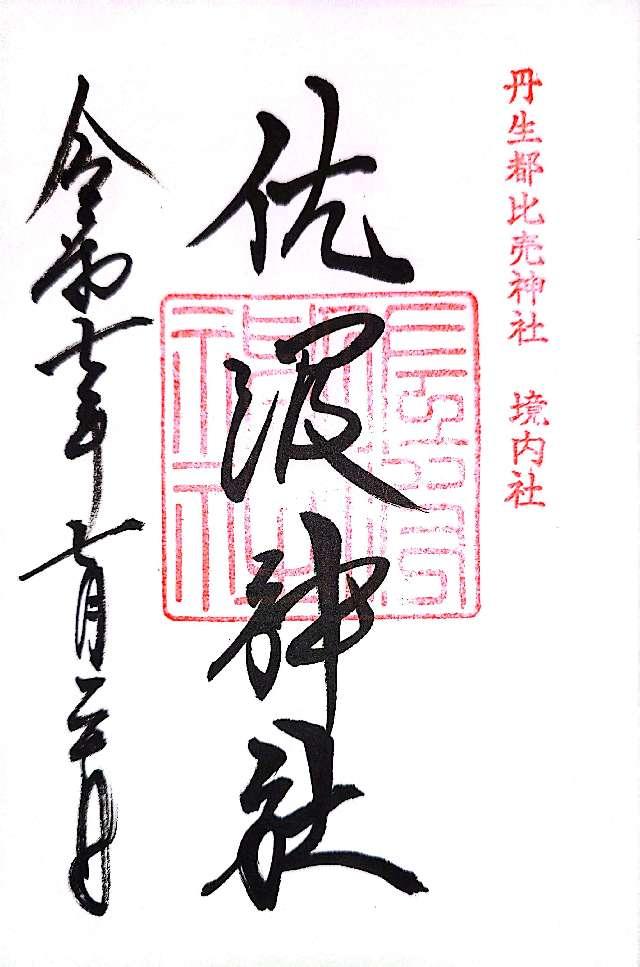 丹生都比売神社 境内社
佐波神社
令和七年七月二十一日